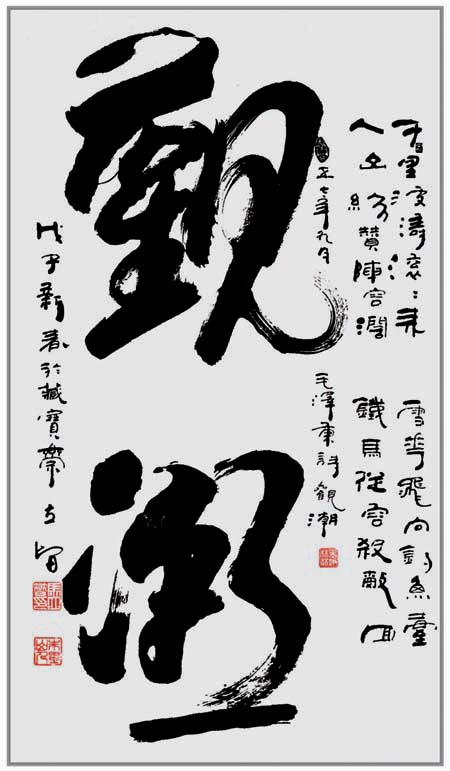 千里波濤滾〻來 雪花飛向釣魚臺
人山紛贊陣容闊 鐵馬從容殺敵回
五七年九月 毛澤東詩觀潮
觀潮
戊子新春於藏寶齋